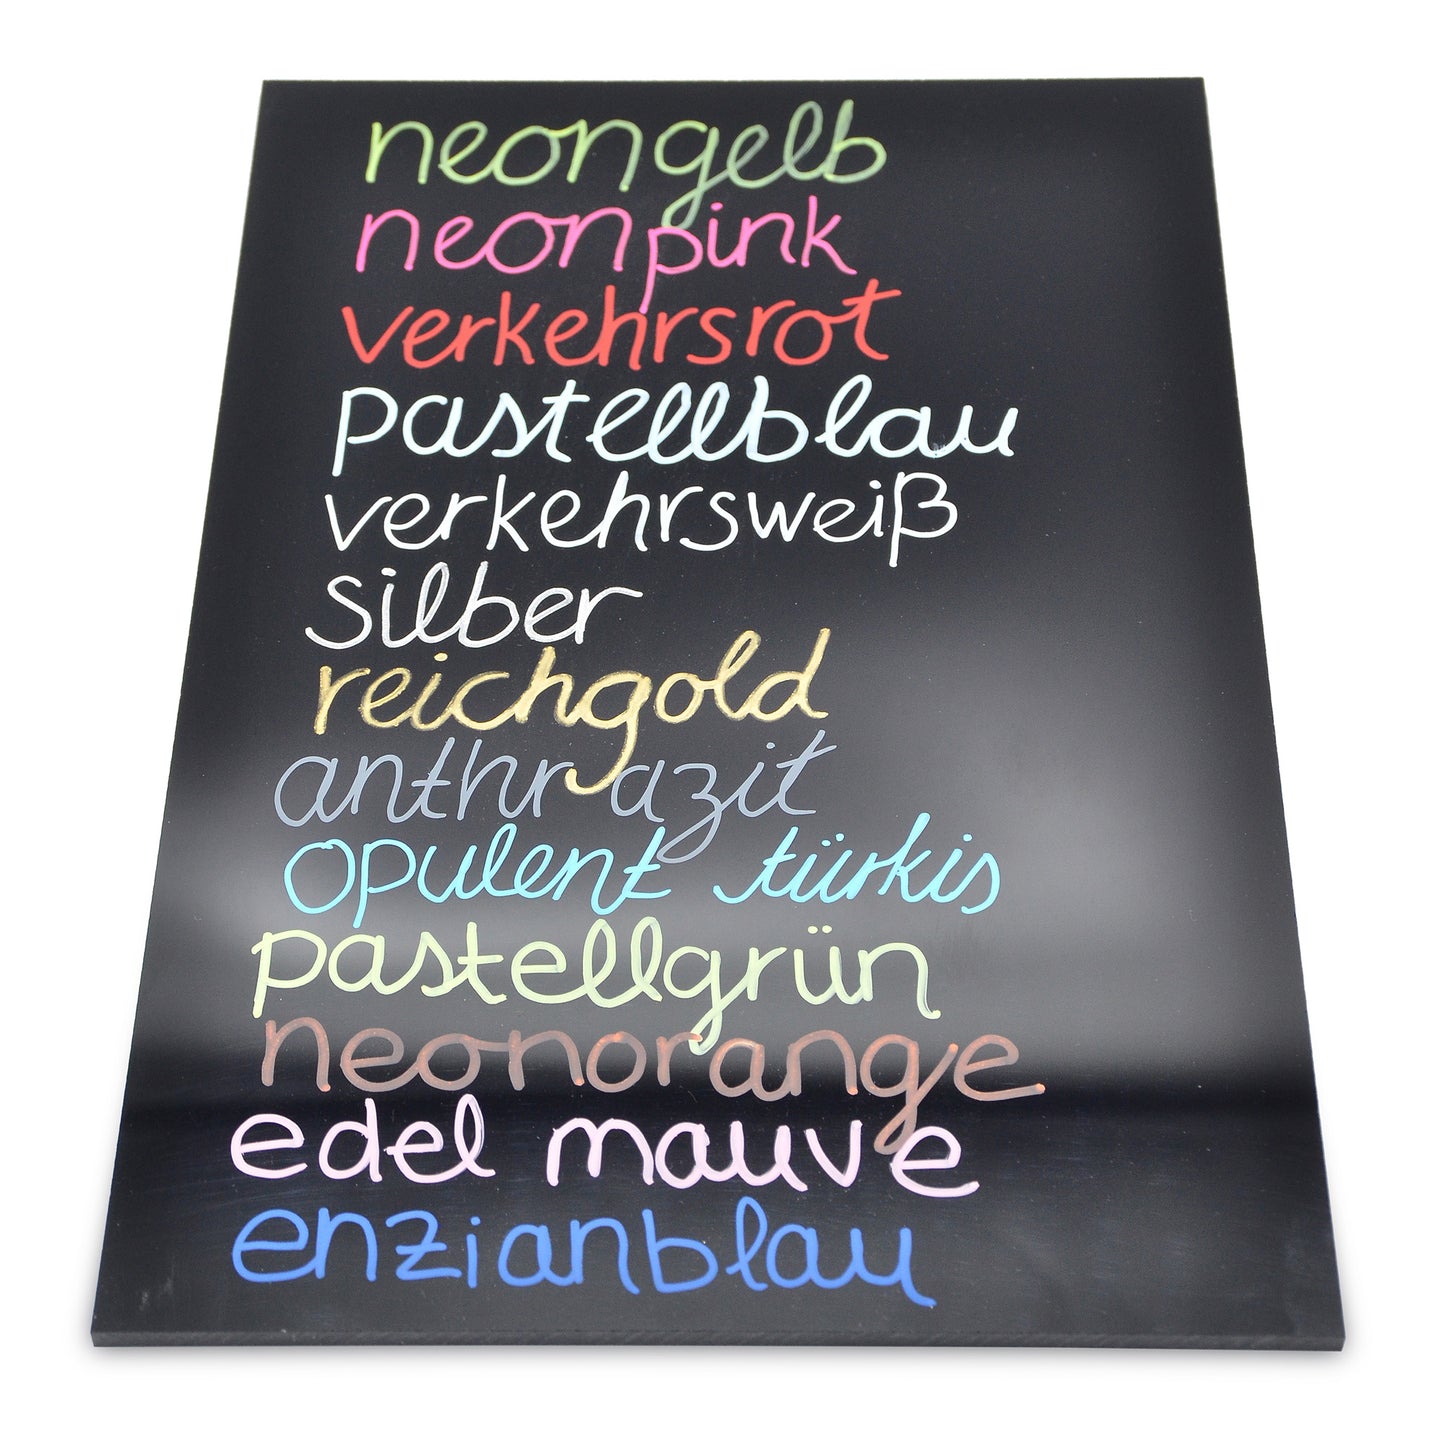 neongelb
neonpink
verkehrsrot
pastellblau
verkehrsweiß
silber
reichgold
anthrazit
opulent türkis
pastellgrün
neonorange
edel mauve
enzianblau